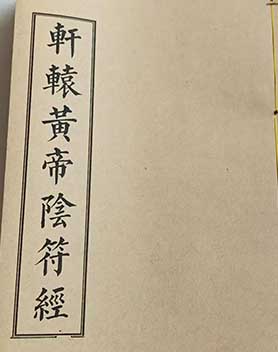 軒轅黃帝陰符經